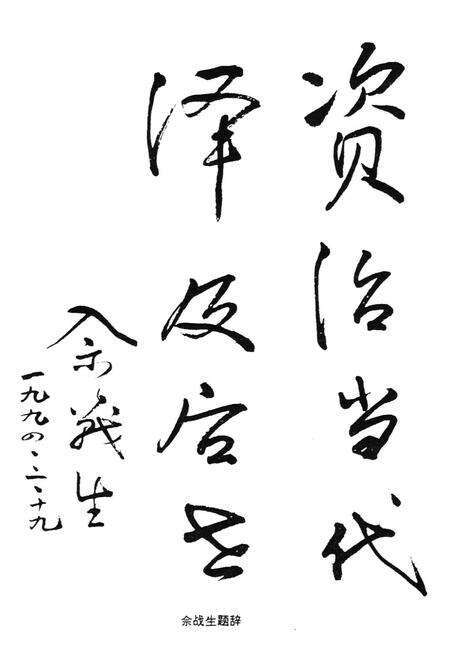 资治当代
泽及后世
佘战生
一九九四、二、十九
佘战生题辞